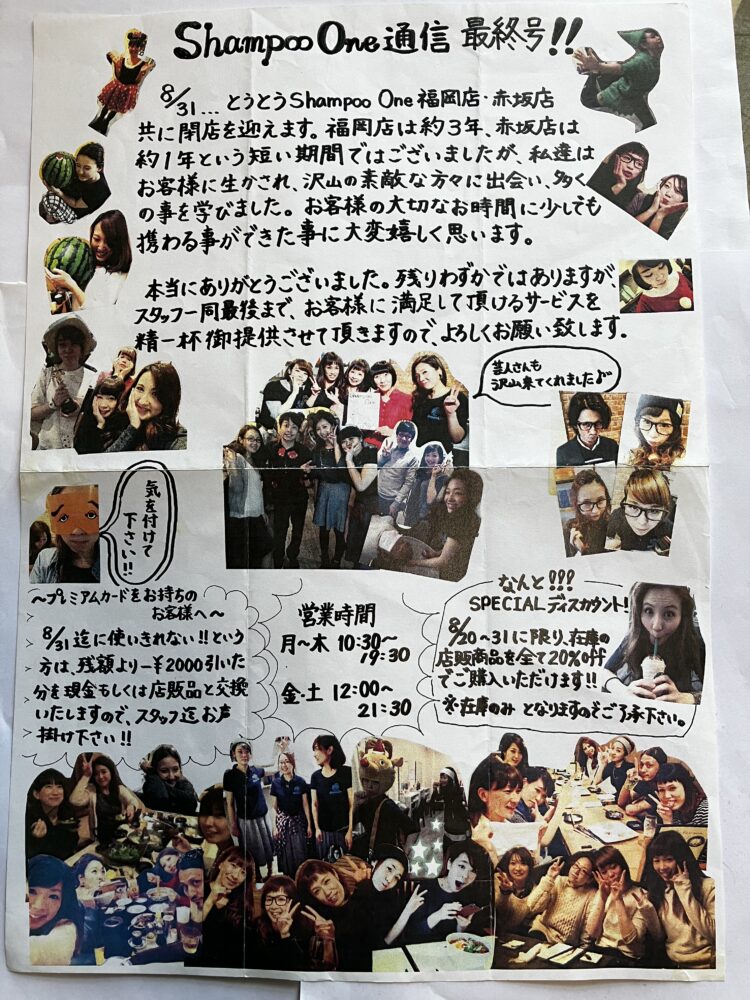 Shampoo One 通信 最終号!!
8/31... とうとうShampoo One 福岡店・赤坂店
共に閉店を迎えます。福岡店は約3年、赤坂店は
約1年という短い期間ではございましたが、私達は
お客様に生かされ、沢山の素敵な方々に出会い、多く
の事を学びました。お客様の大切なお時間に少しでも
携わる事ができた事に大変嬉しく思います。
本当にありがとうございました。残りわずかではありますが、
スタッフ一同最後まで、お客様に満足して頂けるサービスを
精一杯御提供させて頂きますので、よろしくお願い致します。
芸人さんも
沢山来てくれました♪
Shampoo
One
気を付けて
下さい!!
〜プレミアムカードをお持ちの
お客様へ〜
8/31迄に使いきれない!!という
方は、残額より-¥2000引いた
分を現金もしくは店販品と交換
いたしますので、スタッフ迄お声
掛け下さい!!
営業時間
月〜木 10:30〜
19:30
金・土 12:00〜
21:30
なんと!!!
SPECIALディスカウント!
8/20〜31に限り、在庫の
店販商品を全て20%off
でご購入いただけます!!
※在庫のみとなりますのでご了承下さい。